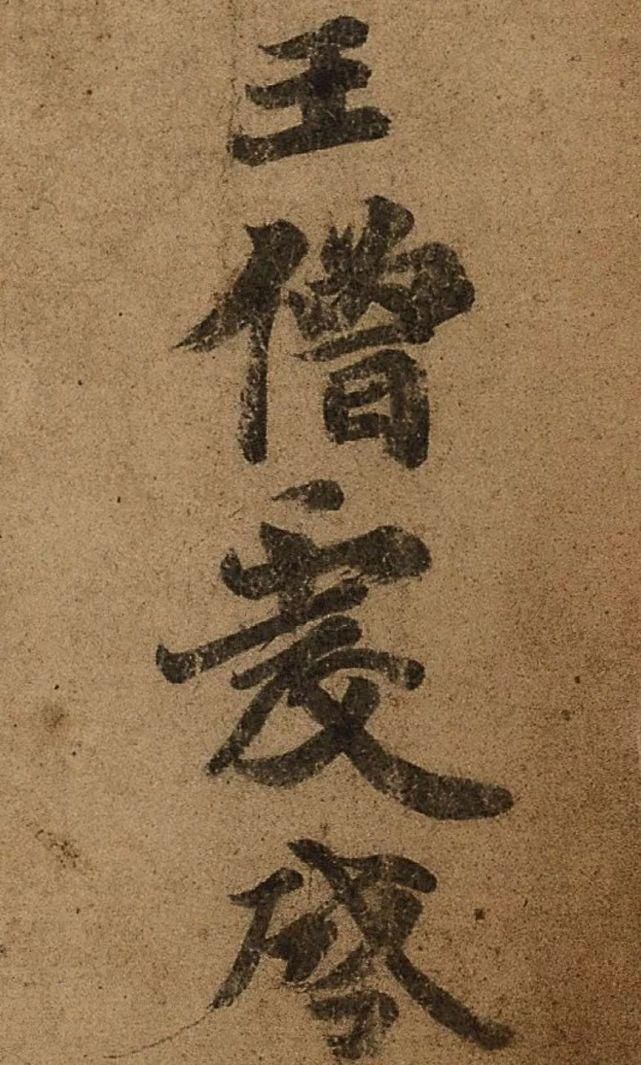 王僧虔啓